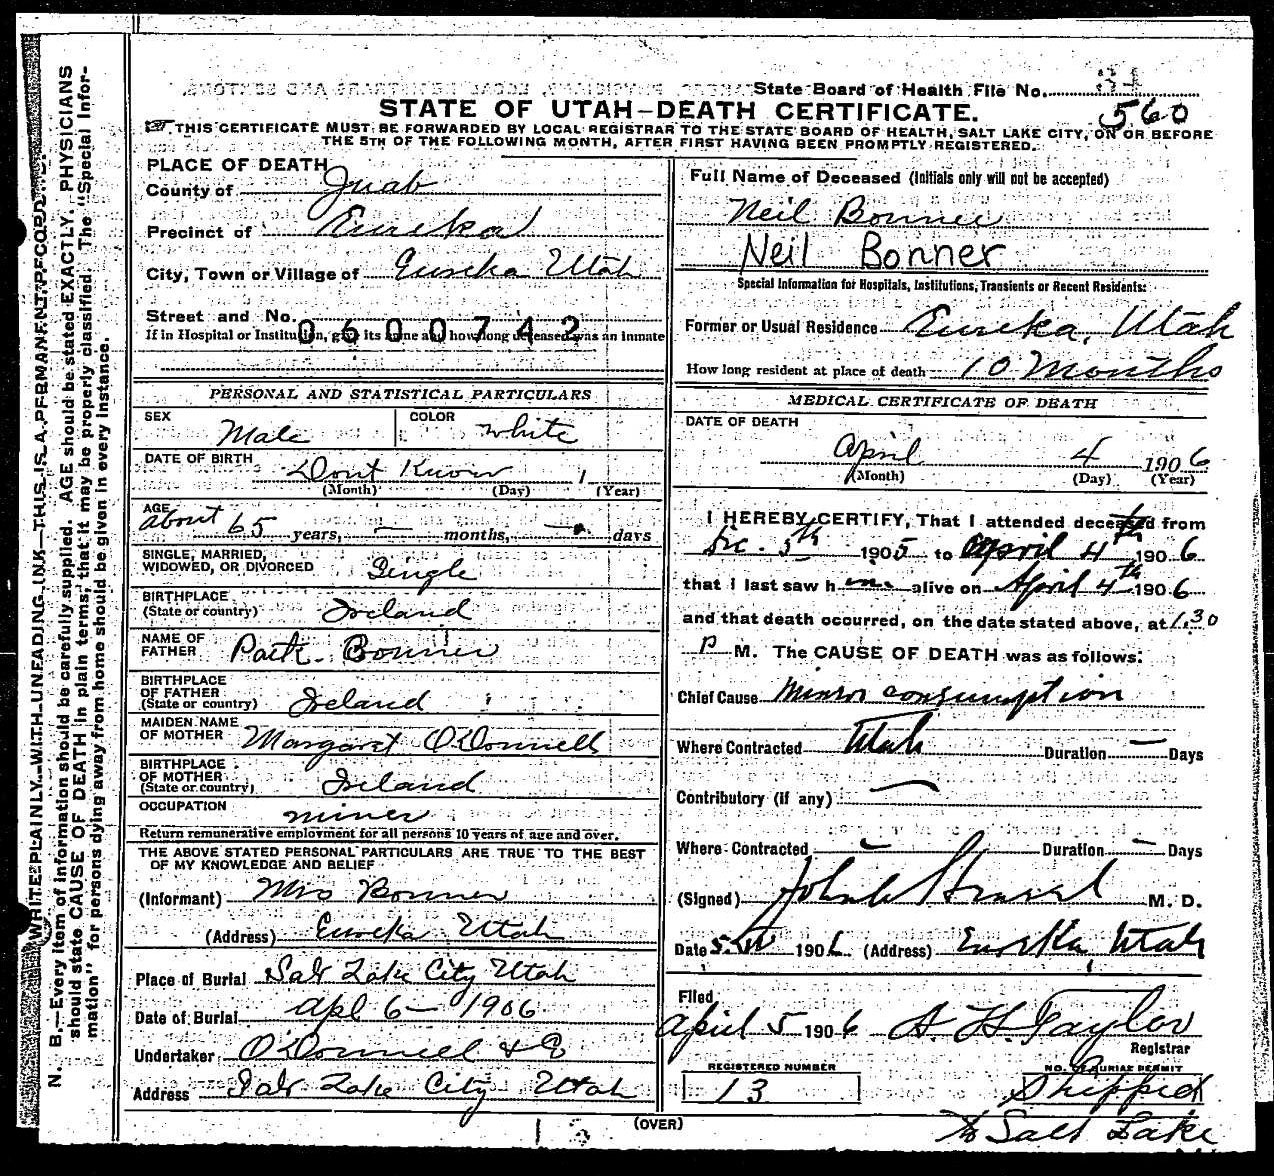 State Board of Health File No. 34
560
STATE OF UTAH—DEATH CERTIFICATE.
THIS CERTIFICATE MUST BE FORWARDED BY LOCAL REGISTRAR TO THE STATE BOARD OF HEALTH, SALT LAKE CITY, ON OR BEFORE
THE 5TH OF THE FOLLOWING MONTH, AFTER FIRST HAVING BEEN PROMPTLY REGISTERED.
PLACE OF DEATH
County of Juab
Precinct of Eureka
City, Town or Village of Eureka Utah
Street and No.
0600742
If in Hospital or Institution, give its name and how long deceased was an inmate
PERSONAL AND STATISTICAL PARTICULARS
SEX Male COLOR White
DATE OF BIRTH Dont Know 1
(Month) (Day) (Year)
AGE about 65 years, — months, — days
SINGLE, MARRIED,
WIDOWED, OR DIVORCED Single
BIRTHPLACE
(State or country) Ireland
NAME OF
FATHER Patk. Bonner
BIRTHPLACE
OF FATHER
(State or country) Ireland
MAIDEN NAME
OF MOTHER Margaret O'Donnell
BIRTHPLACE
OF MOTHER
(State or country) Ireland
OCCUPATION miner
Return remunerative employment for all persons 10 years of age and over.
THE ABOVE STATED PERSONAL PARTICULARS ARE TRUE TO THE BEST
OF MY KNOWLEDGE AND BELIEF
(Informant) Mrs Bonner
(Address) Eureka Utah
Place of Burial Salt Lake City Utah
Date of Burial Apl 6 — 1906
Undertaker O'Donnell & Co
Address Salt Lake City Utah
Full Name of Deceased (Initials only will not be accepted)
Neil Bonner
Neil Bonner
Special Information for Hospitals, Institutions, Transients or Recent Residents:
Former or Usual Residence Eureka, Utah
How long resident at place of death 10 Months
MEDICAL CERTIFICATE OF DEATH
DATE OF DEATH
April 4 1906
(Month) (Day) (Year)
I HEREBY CERTIFY, That I attended deceased from
Dec. 5th 1905 to April 4th 1906
that I last saw him alive on April 4th 1906
and that death occurred, on the date stated above, at 1.30
P M. The CAUSE OF DEATH was as follows:
Chief Cause Miners consumption
Where Contracted Utah Duration — Days
Contributory (if any) —
Where Contracted — Duration — Days
(Signed) M. D.
Date 1906 (Address) Eureka, Utah
Filed
April 5 1906 A. H. Taylor
Registrar
REGISTERED NUMBER
13
NO. BURIAL PERMIT
Shipped
To Salt Lake
(OVER)
N. B.—Every item of information should be carefully supplied. AGE should be stated EXACTLY. PHYSICIANS
should state CAUSE OF DEATH in plain terms, that it may be properly classified. The "Special Infor-
mation" for persons dying away from home should be given in every instance.
WRITE PLAINLY WITH UNFADING INK—THIS IS A PERMANENT RECORD